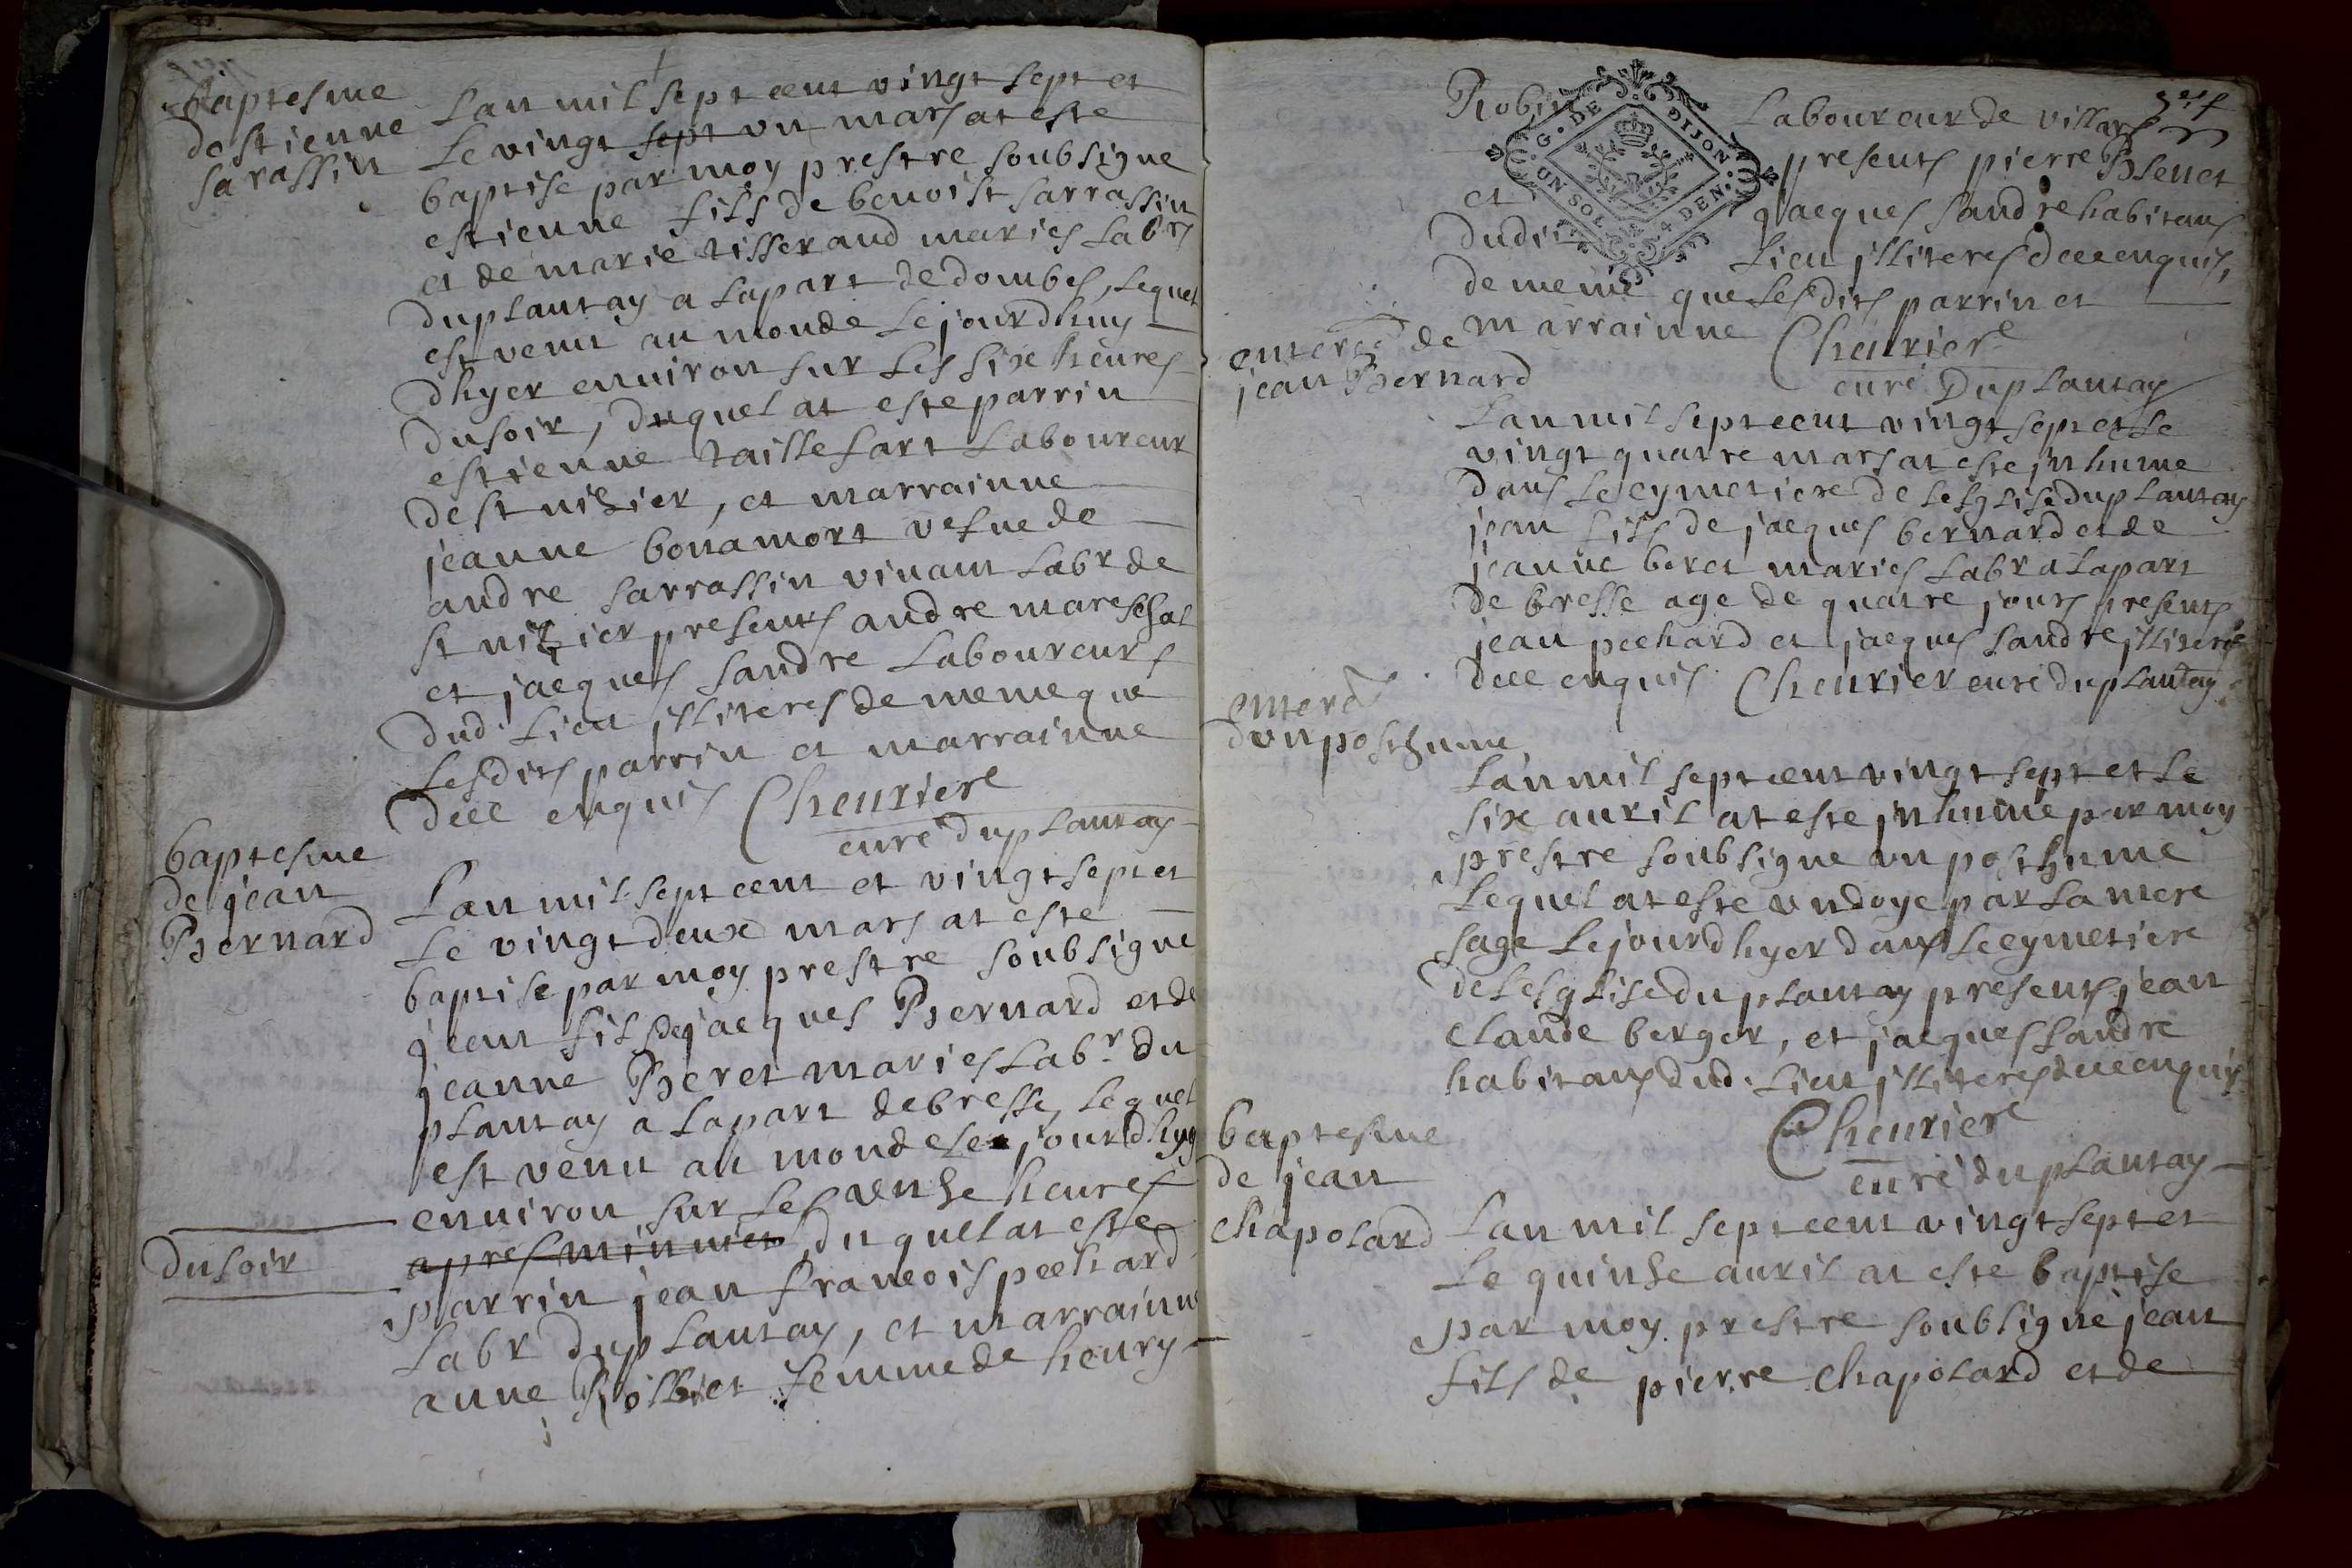 baptesme
destienne
sarassin
Lan mil sept cent vingt sept et
Le vingt sept un mars at este
baptise par moy prestre soubsigne
estienne fils de benoist sarrassin
et de marie tisserand maries Labrs
du plantay a la part de dombes, lequel
est venu au monde le jourdhuy
dhyer environ sur les six heures
du soir, duquel at este parrin
estienne taillefart Laboureur
de st nizier, et marrainne
jeanne bonamort vefue de
andre sarrassin vivant Labr de
st nizier presents andre mareschal
et jacques sandre Laboureurs
dud. Lieu illiteres de meme que
Lesdits parrin et marrainne
dece enquis Cheurier
curé du plantay
baptesme
de jean
Bernard
Lan mil sept cent et vingt sept et
Le vingt deux mars at este
baptise par moy prestre soubsigne
jean fils de jacques Bernard et de
jeanne Beret maries Labr. du
plantay a la part de bresse, lequel
est venu au monde le jourdhyer
environ sur les onze heures
du soir
apres minuict, duquel at este
parrin jean francois pechard
Labr du plantay, et marrainne
anne femme de henry
Robin Laboureur de villars
presents pierre Benet
et jacques sandre habitans
dudit Lieu illiteres dece enquis,
de meme que Lesdits parrin et
marrainne Cheurier
curé Du plantay
G. DE DIJON
UN SOL 4 DEN.
enterré de
jean Bernard
Lan mil sept cent vingt sept et le
vingt quatre mars at este inhume
dans le cymetiere de lesglise du plantay
jean fils de jacques bernard et de
jeanne beret maries Labr a la part
de bresse age de quatre jours presents
jean pechard et jacques sandre illiteres
dece enquis Cheurier curé du plantay
enterré
dun posthume
Lan mil sept cent vingt sept et le
six auril at este inhumé par moy
prestre soubsigne un posthume
Lequel at este ondoye par la mere
sage le jourdhyer dans le cymetiere
de lesglise du plantay presents jean
claude berger, et jacques sandre
habitans dud. Lieu illiteres dece enquis
Cheurier
curé du plantay
baptesme
de jean
chapolard
Lan mil sept cent vingt sept et
Le quinze auril at este baptise
par moy prestre soubsigné jean
fils de pierre chapolard et de